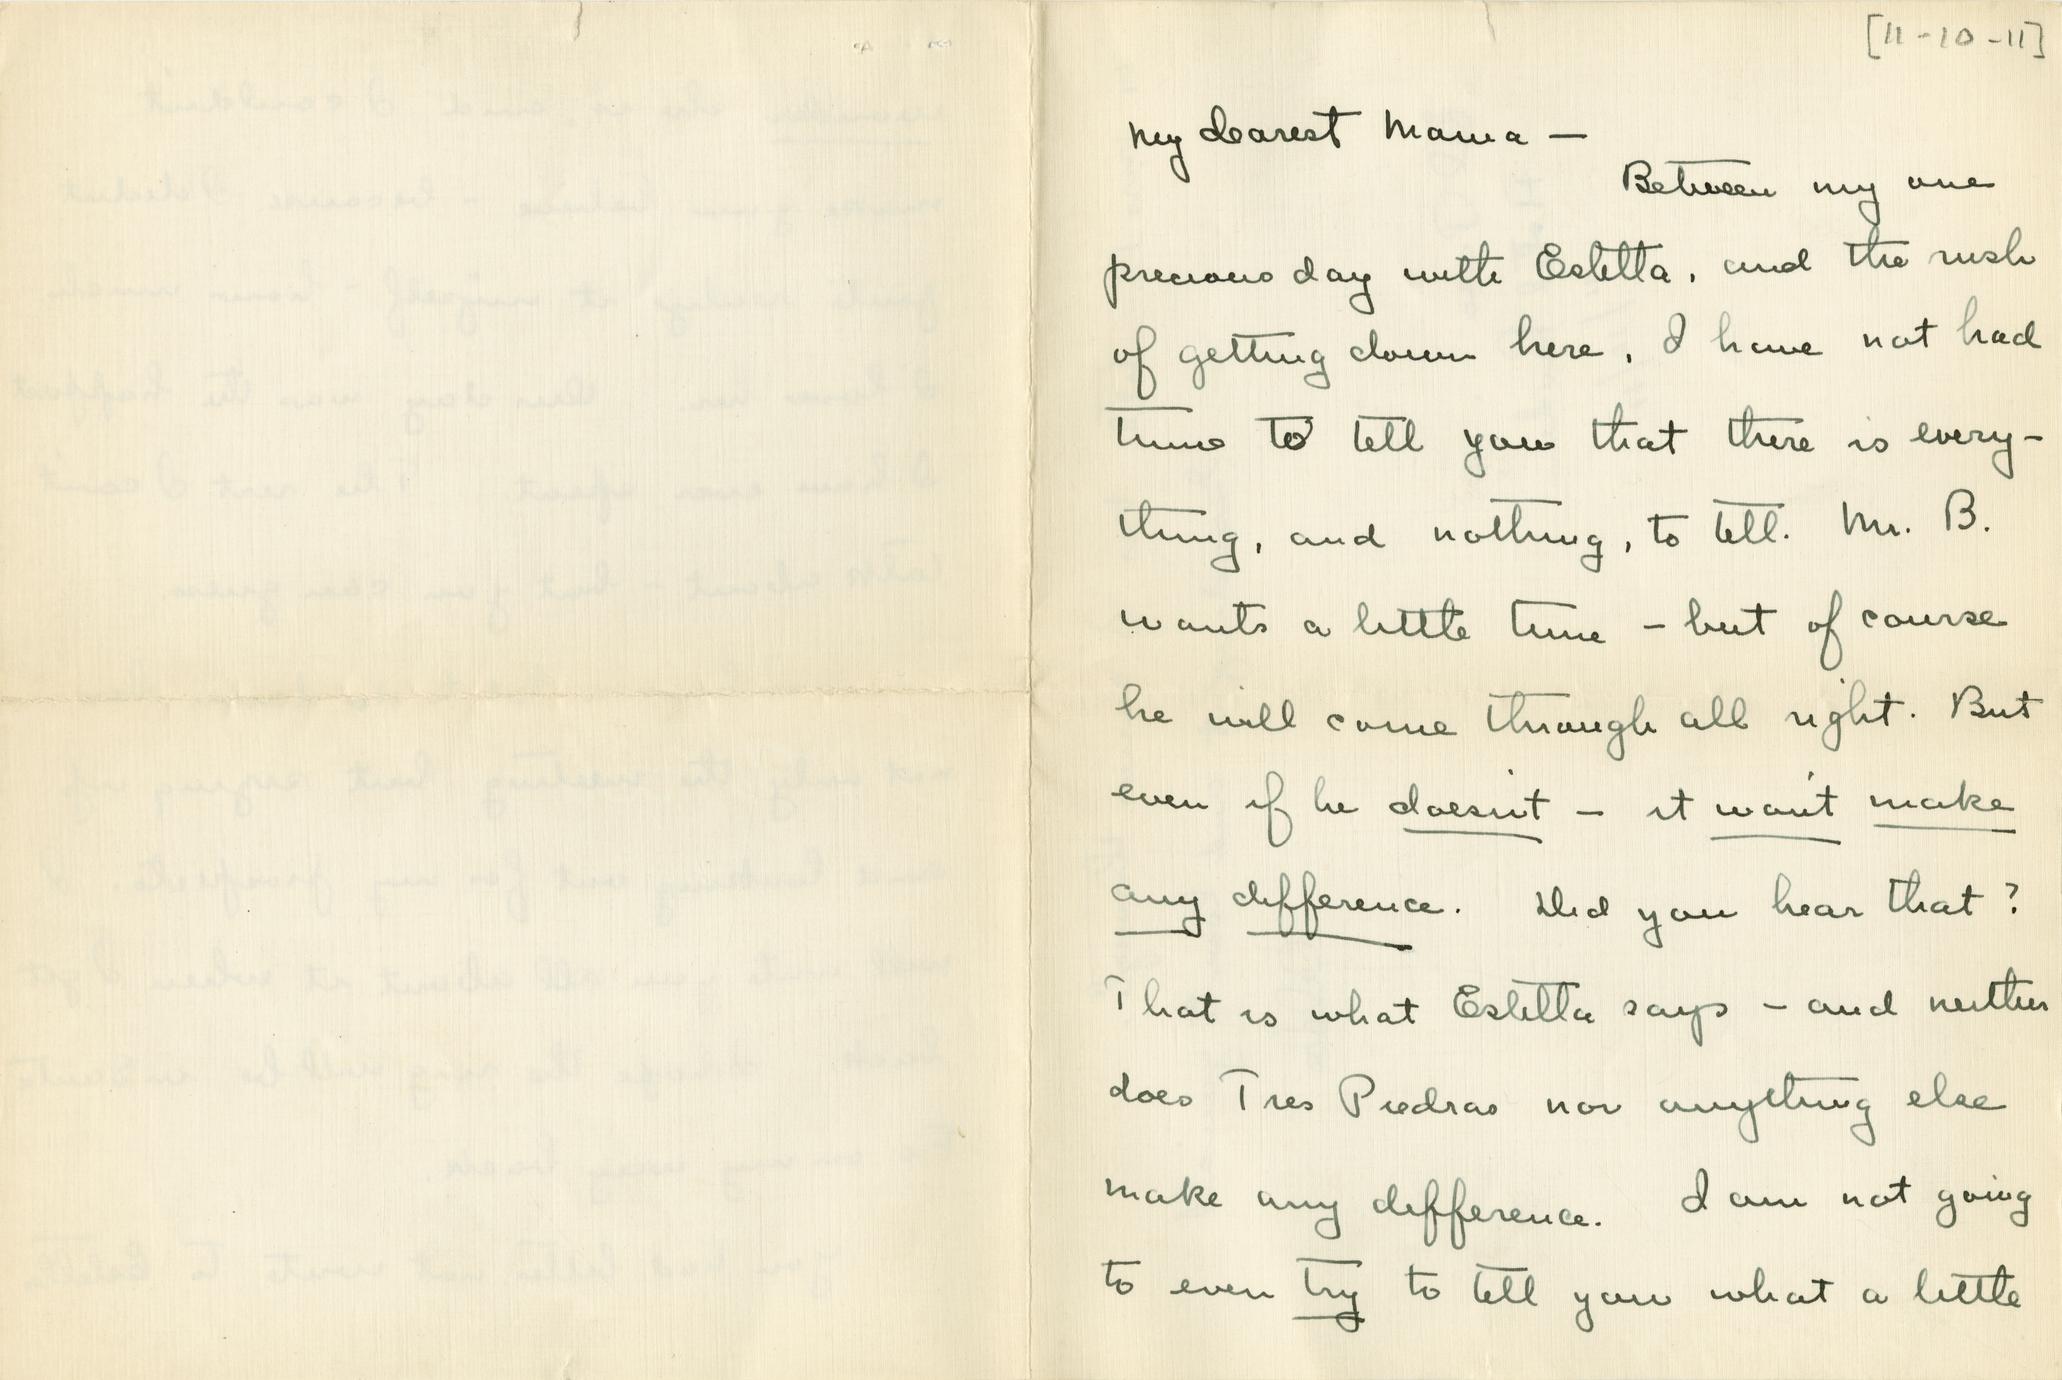 [11-10-11]
My dearest Mama –
Between my one
precious day with Estella, and the rush
of getting down here, I have not had
time to tell you that there is every-
thing, and nothing, to tell. Mr. B.
wants a little time – but of course
he will come through all right. But
even if he doesn't – it won't make
any difference. Did you hear that?
That is what Estella says – and neither
does Tres Piedras nor anything else
make any difference. I am not going
to even try to tell you what a little